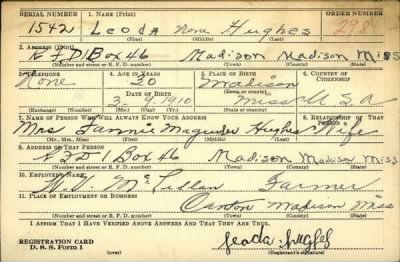 SERIAL NUMBER 1. NAME (Print) ORDER NUMBER
1542 Leoda None Hughes 298
(First) (Middle) (Last)
2. ADDRESS (Print)
R F D 1 Box 46 Madison Madison Miss
(Number and street or R. F. D. number) (Town) (County) (State)
3. TELEPHONE 4. AGE IN YEARS 5. PLACE OF BIRTH 6. COUNTRY OF CITIZENSHIP
None 30 Madison
DATE OF BIRTH (Town or county)
3-9-1910 Miss U.S.A
(Exchange) (Number) (Mo.) (Day) (Yr.) (State or country)
7. NAME OF PERSON WHO WILL ALWAYS KNOW YOUR ADDRESS 8. RELATIONSHIP OF THAT PERSON
Mrs. Fannie Hughes Wife
(Mr., Mrs., Miss) (First) (Middle) (Last)
9. ADDRESS OF THAT PERSON
R F D 1 Box 46 Madison Madison Miss
(Number and street or R. F. D. number) (Town) (County) (State)
10. EMPLOYER'S NAME
Farmer
11. PLACE OF EMPLOYMENT OR BUSINESS
Canton Madison Miss
(Number and street or R. F. D. number) (Town) (County) (State)
I AFFIRM THAT I HAVE VERIFIED ABOVE ANSWERS AND THAT THEY ARE TRUE.
REGISTRATION CARD
D. S. S. Form 1
(Registrant's signature)